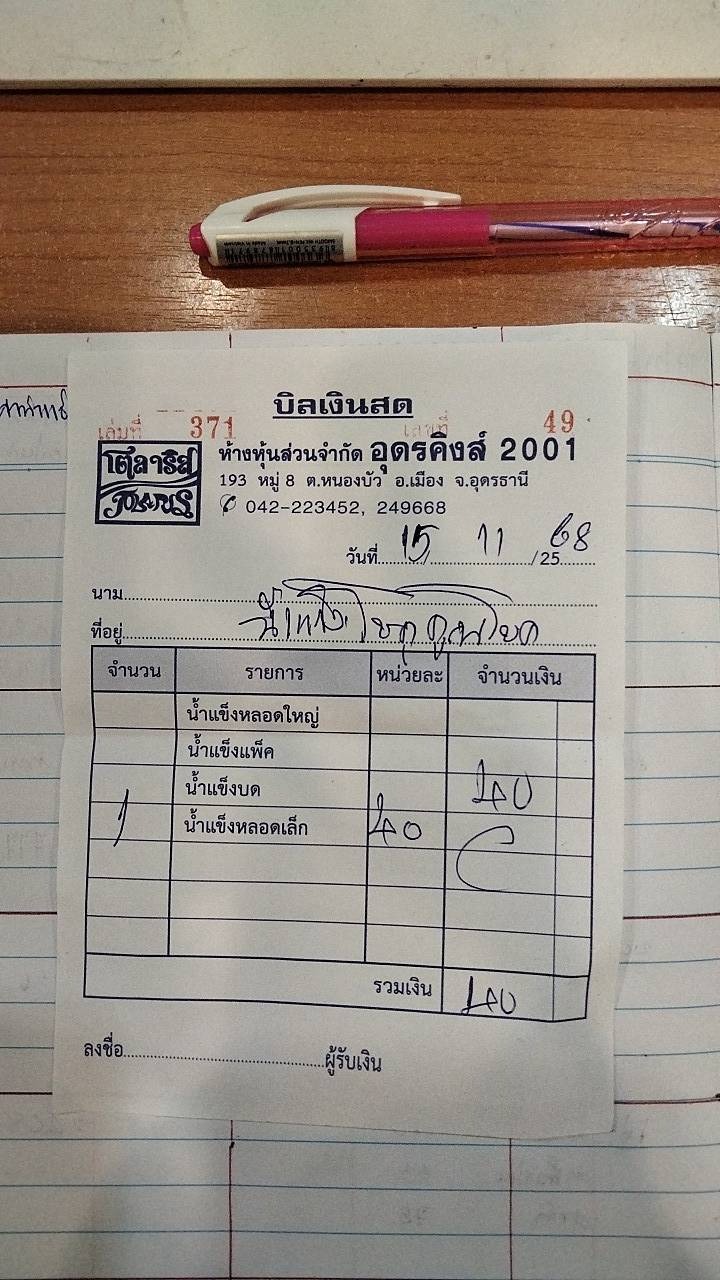 บิลเงินสด
เล่มที่ 371 เลขที่ 49
โพลาริส
POLARIS
ห้างหุ้นส่วนจำกัด อุดรคิงส์ 2001
193 หมู่ 8 ต.หนองบัว อ.เมือง จ.อุดรธานี
042-223452, 249668
วันที่ 15/ 11 /25 68
นาม
ที่อยู่
จำนวน รายการ หน่วยละ จำนวนเงิน
น้ำแข็งหลอดใหญ่
น้ำแข็งแพ็ค
น้ำแข็งบด 40
1 น้ำแข็งหลอดเล็ก 40
รวมเงิน 40
ลงชื่อ ผู้รับเงิน